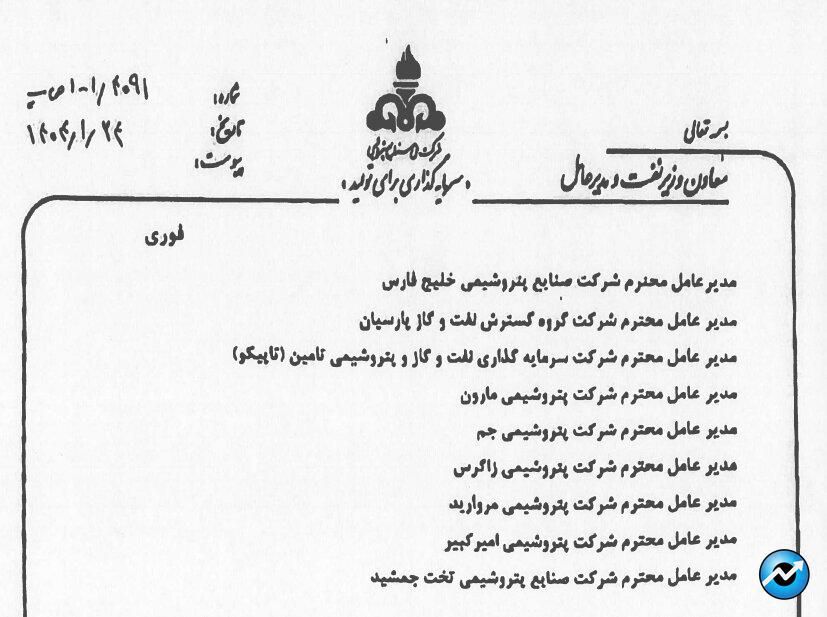 بسمه تعالی
معاون وزیر نفت و مدیرعامل
شرکت ملی صنایع پتروشیمی
«سرمایه گذاری برای تولید»
شماره:
تاریخ: ۱۴۰۴/۱/۲۴
پیوست:
فوری
مدیرعامل محترم شرکت صنایع پتروشیمی خلیج فارس
مدیر عامل محترم شرکت گروه گسترش نفت و گاز پارسیان
مدیر عامل محترم شرکت سرمایه گذاری نفت و گاز و پتروشیمی تامین (تاپیکو)
مدیر عامل محترم شرکت پتروشیمی مارون
مدیر عامل محترم شرکت پتروشیمی جم
مدیر عامل محترم شرکت پتروشیمی زاگرس
مدیر عامل محترم شرکت پتروشیمی مروارید
مدیر عامل محترم شرکت پتروشیمی امیرکبیر
مدیر عامل محترم شرکت صنایع پتروشیمی تخت جمشید